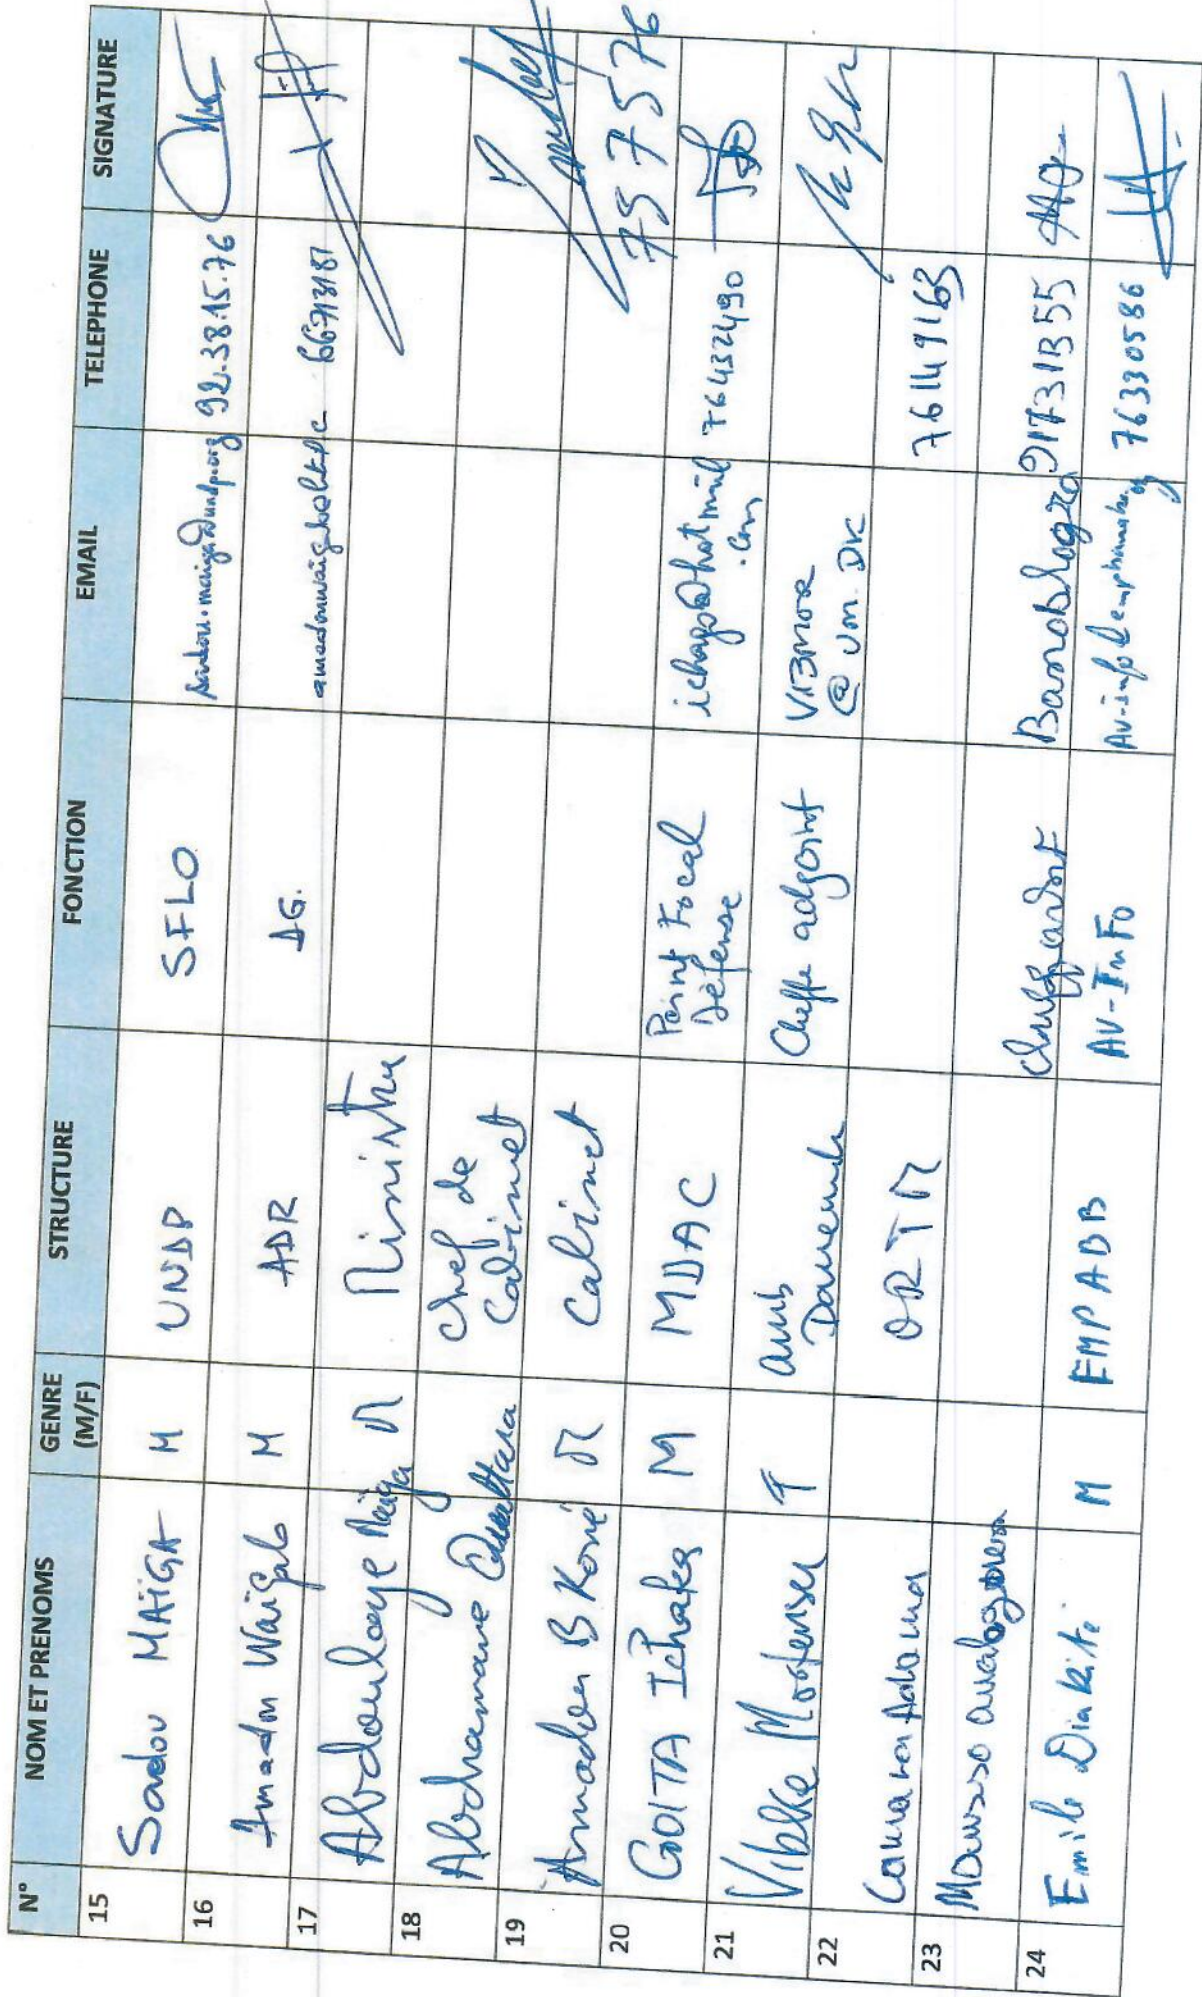 N° NOM ET PRENOMS GENRE (M/F) STRUCTURE FONCTION EMAIL TELEPHONE SIGNATURE
15 Sadou MAÏGA M UNDP SFLO sadou.maiga@undp.org 92.38.15.76
16 Amadou Waïgalo M ADR DG. 66713181
17 Abdoulaye Maïga M Ministre
18 Abdramane Chef de Cabinet
19 Amadou B Koné M Cabinet 75 75 76
20 GOITA Ichaka M MDAC Point Focal Défense ichago@hotmail.com 76432490
21 Vibeke Mortensen F amb Danemark Cheffe adjoint VIBMOR @ um.DK
22 Camara Adama ORTM 76149163
23 91731355
24 Emile Diakité M EMPABB AV-InFo 76330586